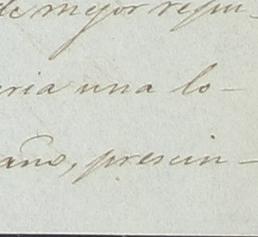 de mejor repu-
eria una lo-
año, prescin-